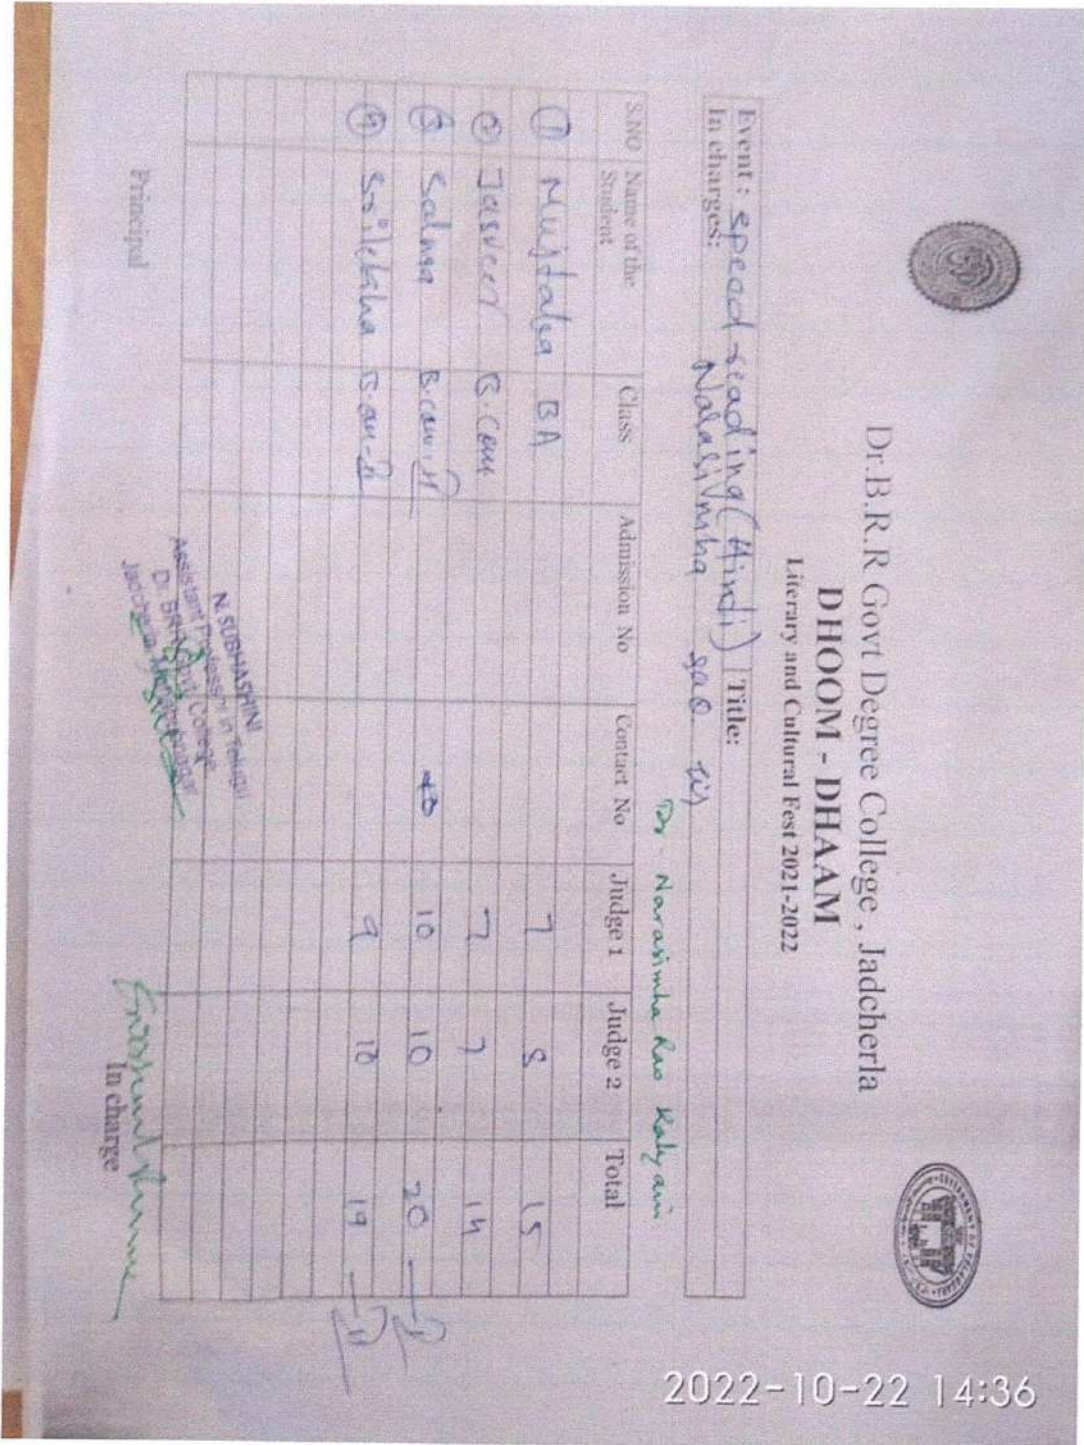 Dr.B.R.R Govt Degree College , Jadcherla
DHOOM - DHAAM
Literary and Cultural Fest 2021-2022
Event : speed reading (Hindi) Title:
In charges: Narasimha rao
Dr Narasimha Rao Kalyani
S.NO Name of the Student Class Admission No Contact No Judge 1 Judge 2 Total
1 Mujtaba BA 7 8 15
2 Jasveer B.Com 7 7 14
3 Salma B.com.II 10 10 20 — I
4 Srilekha 9 10 19 — II
N. SUBHASHINI
Assistant Professor in Telugu
Dr. BRR Govt. College
Jadcherla, Mahabubnagar
Principal In charge
2022-10-22 14:36